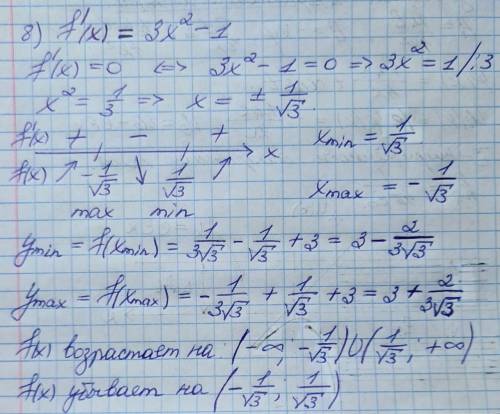 8) f'(x) = 3x² - 1
f'(x) = 0 <=> 3x² - 1 = 0 => 3x² = 1 /:3
x² = 1/3 => x = ± 1/√3.
f'(x) + - + x
f(x) ↗ -1/√3 ↘ 1/√3 ↗
max min
x min = 1/√3
x max = - 1/√3
y min = f(x min) = 1/3√3 - 1/√3 + 3 = 3 - 2/3√3
y max = f(x max) = - 1/3√3 + 1/√3 + 3 = 3 + 2/3√3
f(x) возрастает на (-∞; -1/√3) ∪ (1/√3; +∞)
f(x) убывает на (-1/√3; 1/√3)